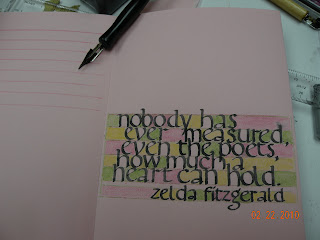 nobody has
ever measured,
even the poets,
how much a
heart can hold.
zelda fitzgerald